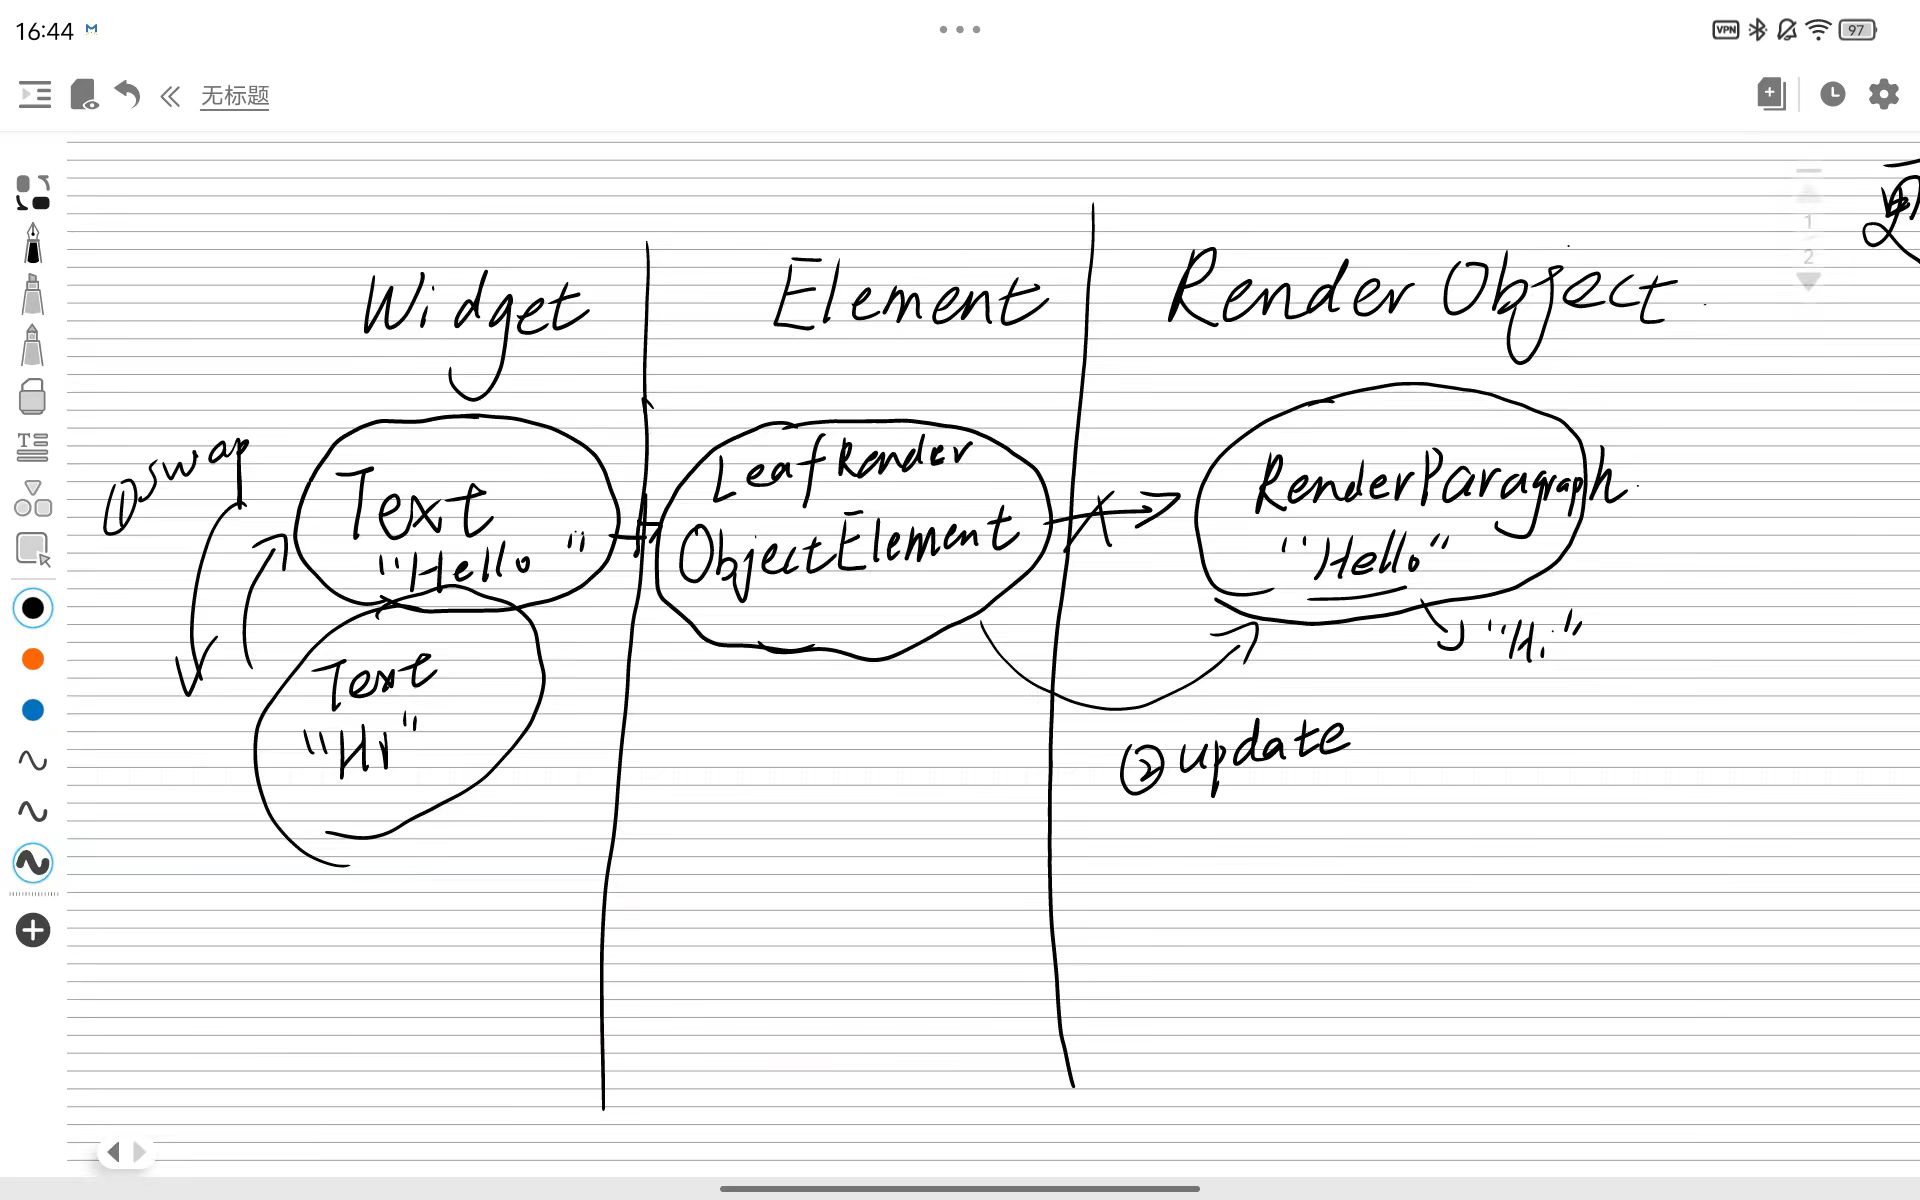 16:44
VPN
97
无标题
1
2
Widget
Element
RenderObject
①swap
Text
"Hello"
LeafRender
ObjectElement
RenderParagraph
"Hello"
"Hi"
Text
"Hi"
②update